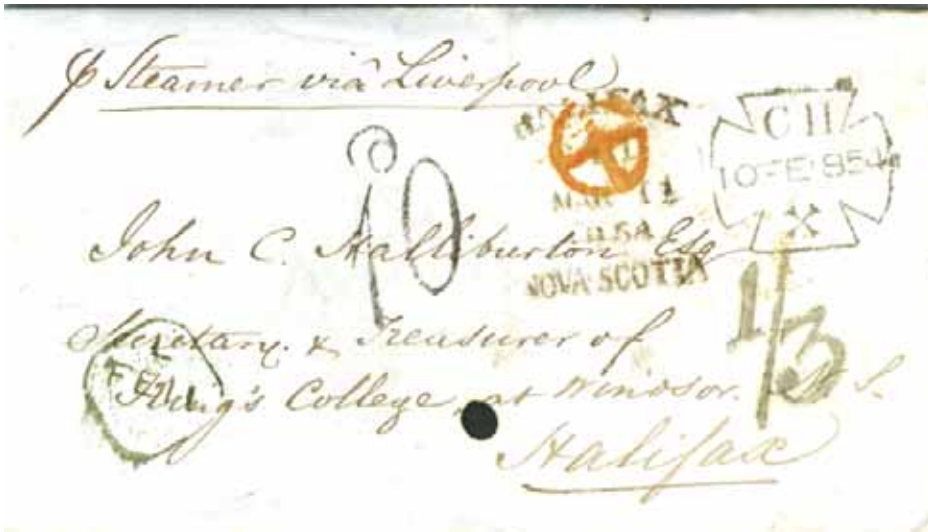 p Steamer viâ Liverpool
HALIFAX
MAR 11
1854
NOVA SCOTIA
C H
10 FE 1854
X
10
John C. Halliburton Esq
1/3
Secretary & Treasurer of
King's College, at Windsor. N. S.
Halifax